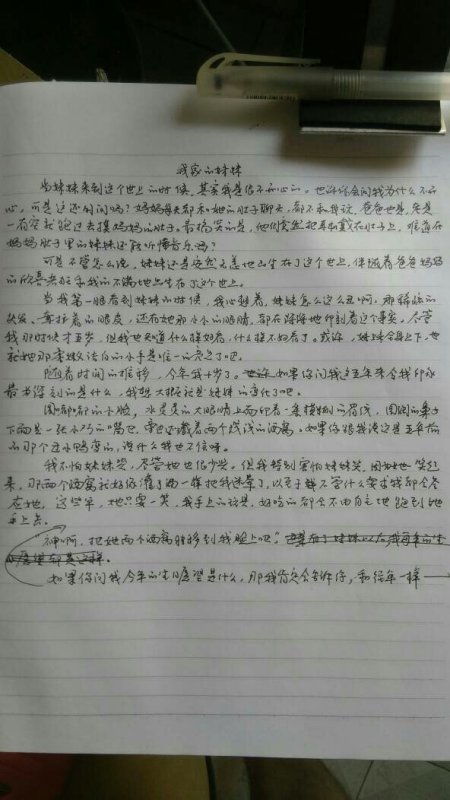 我家的妹妹
当妹妹来到这个世上的时候，其实我是很不开心的。也许你会问我为什么不开
心，可是这还用问吗？妈妈每天都和她的肚子聊天，都不和我说，爸爸也是，老是
一有空就跑过去摸妈妈的肚子。最搞笑的是，他们竟然把耳机戴在肚子上，难道在
妈妈肚子里的妹妹还能听懂音乐吗？
可是不管怎么说，妹妹还是安然无恙地出生在了这个世上，伴随着爸爸妈妈
的欣喜和我的不满地出生在了这个世上。
当我第一眼看到妹妹的时候，我心想着，妹妹怎么这么丑啊，那稀疏的
头发、耷拉着的眼皮，还有她那小小的眼睛，都在深深地印刻着这个事实。尽管
我那时候才五岁，但我也知道什么样好看，什么样不好看了。或许，妹妹全身上下，也
就她那素嫩洁白的小手是唯一的亮点了吧。
随着时间的推移，今年我十岁了。如果你问我这五年来令我印象
最为深刻的是什么，我想大概就是妹妹的变化了吧。
圆嘟嘟的小脸，水灵灵的大眼睛上面印着一条模糊的眉线，圆圆的鼻子
下面是一张小巧的嘴巴，旁边还藏着两个浅浅的酒窝。如果你跟我说这是五年前
的那个丑小鸭变的，说什么我也不信呀。
我不怕妹妹哭，尽管她也很少哭。但我特别害怕妹妹笑，因为她一笑起
来，那两个酒窝就好似灌了酒一样把我迷晕了，以至于无论什么要求我都会答
应她，这些年，她只要一笑，我手上的玩具，好吃的都会不由自主地跑到她
手上去。
神啊，把她两个酒窝转移到我脸上吧！
如果你问我今年的生日愿望是什么，那我肯定会告诉你，和往年一样——